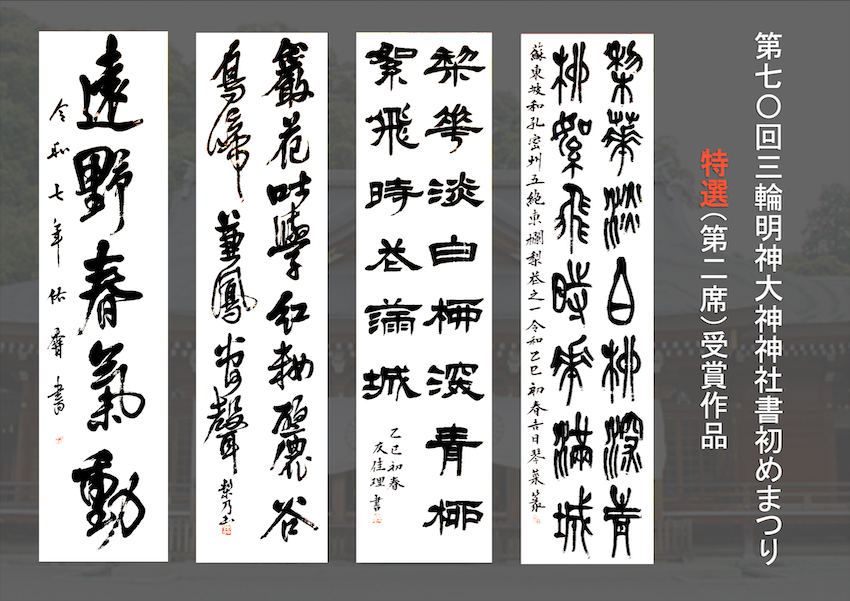 第七〇回三輪明神大神神社書初めまつり
特選(第二席)受賞作品
棃華淡白柳深青
柳絮飛時華滿城
蘇東坡和孔密州五絶東欄梨花之一令和乙巳初春吉日琴菜篆
棃華淡白柳深青柳
絮飛時花滿城
乙巳初春
友佳理書
巖花學紅妝麗谷
鳥啼兼鳳管聲
梨乃書
遠野春氣動
令和七年佑書